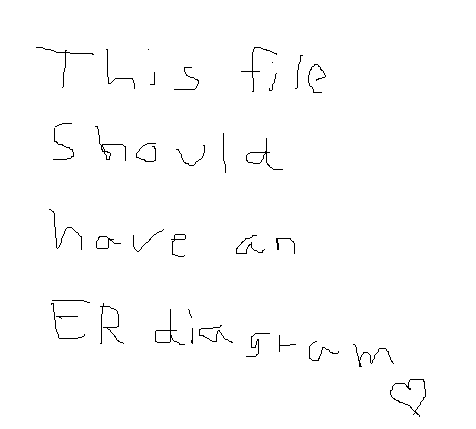 This file
Should
have an
ER diagram